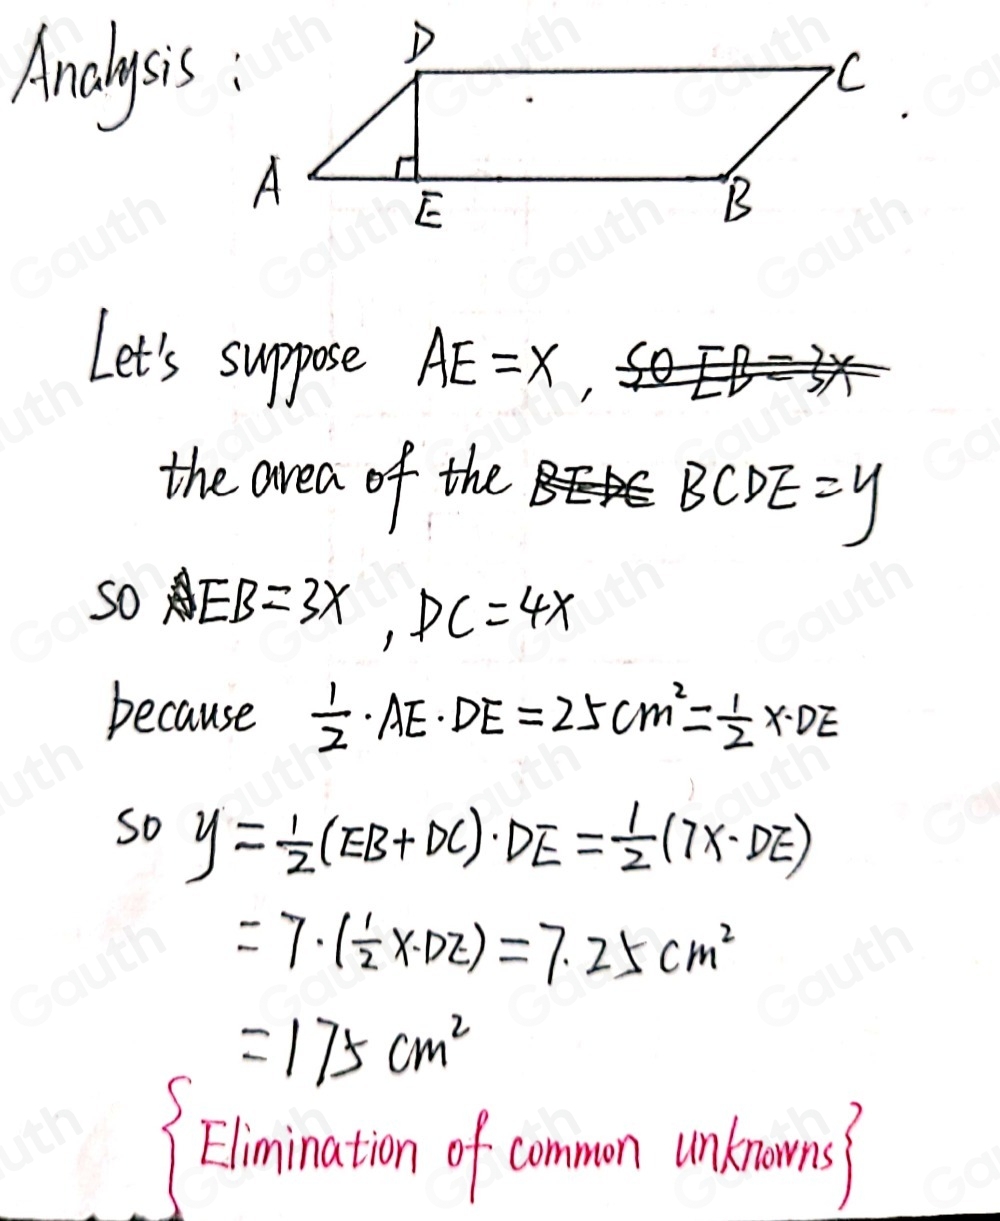 Analysis :
D
C
A
E
B
Let's suppose AE = x , so EB = 3x
the area of the BEDC BCDE = y
so EB = 3x , DC = 4x
because 1/2 · AE · DE = 25 cm² = 1/2 x · DE
so y = 1/2 (EB + DC) · DE = 1/2 (7x · DE)
= 7 · (1/2 x · DE) = 7 . 25 cm²
= 175 cm²
{ Elimination of common unknowns }
Gauth